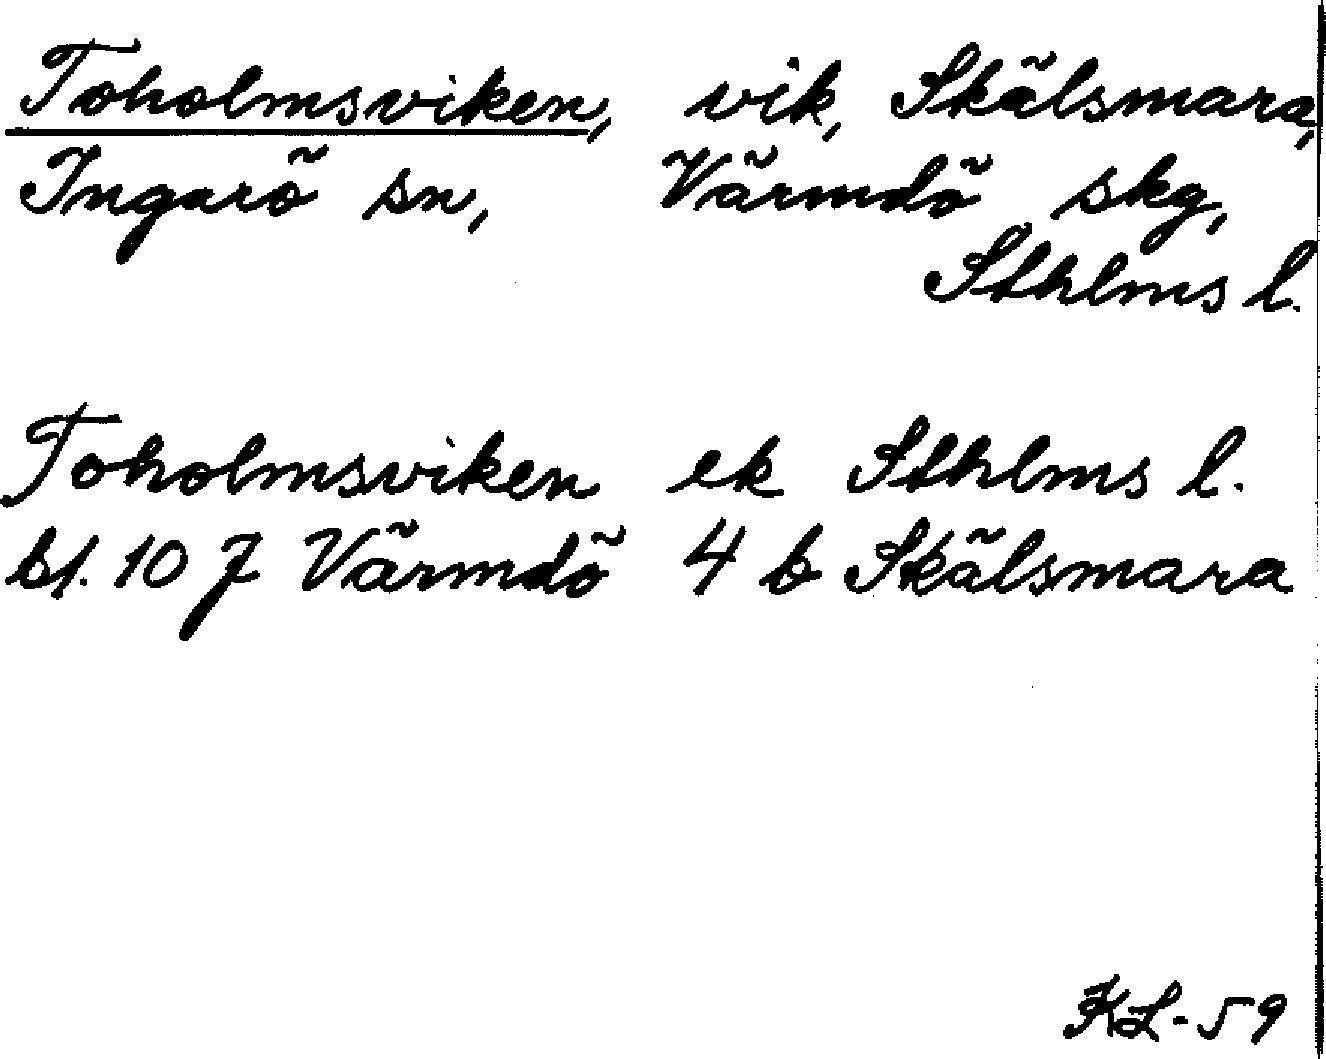 Toholmsviken, vik, Skälsmara,
Ingarö sn, Värmdö skg,
Sthlms l.
Toholmsviken ek Sthlms l.
bl. 10 J Värmdö 4 b Skälsmara
KL-59